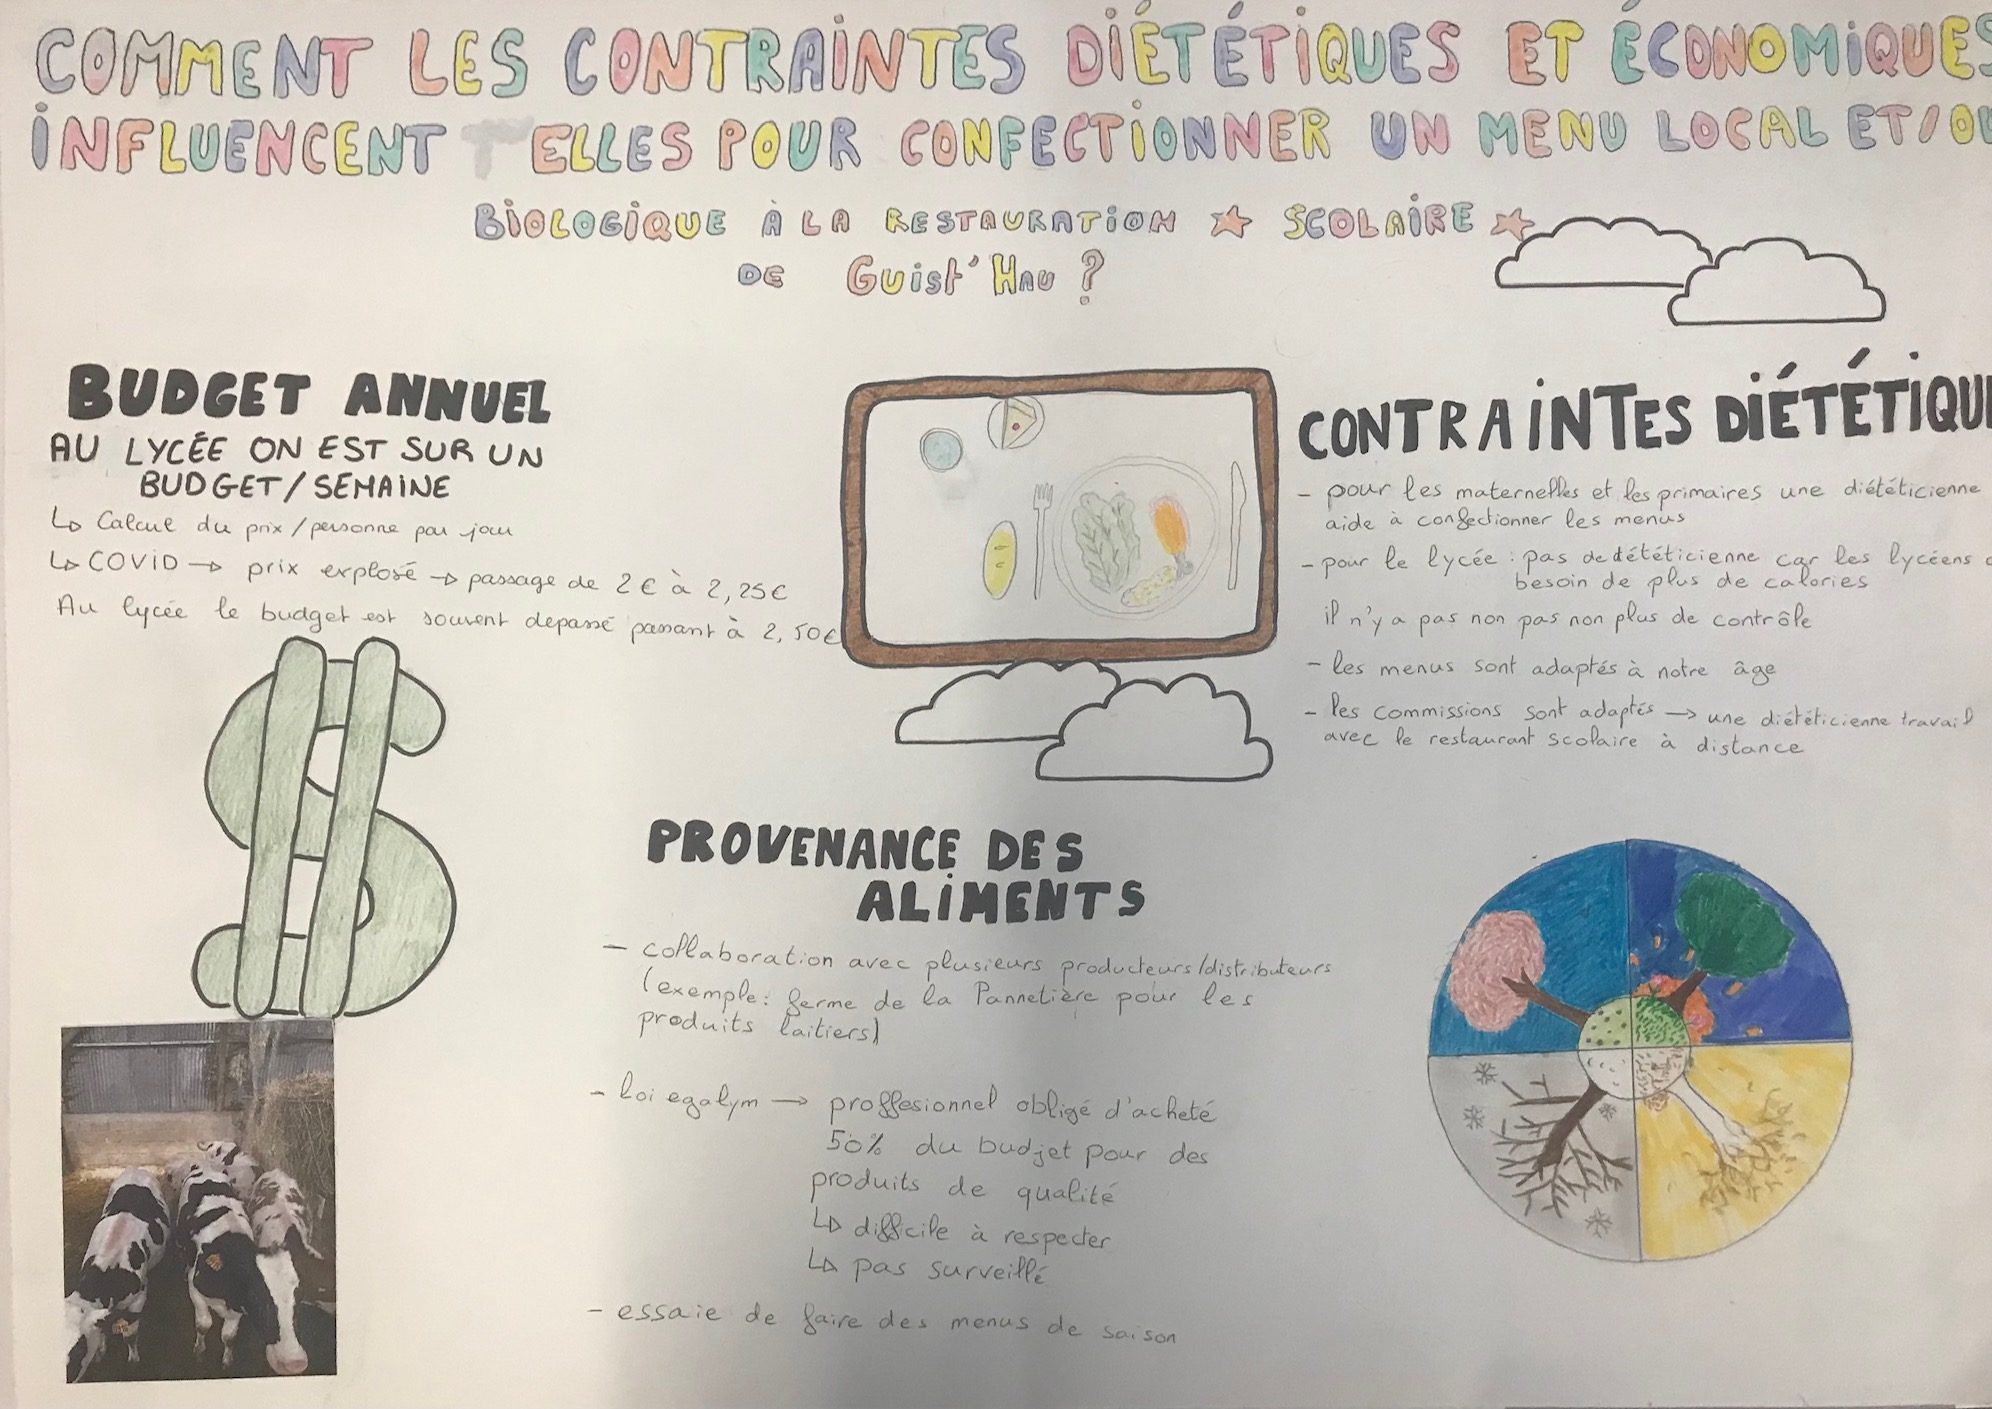 COMMENT LES CONTRAINTES DIÉTÉTIQUES ET ÉCONOMIQUES
INFLUENCENT ELLES POUR CONFECTIONNER UN MENU LOCAL ET/OU
BIOLOGIQUE À LA RESTAURATION SCOLAIRE
DE GUIST'HAU ?
BUDGET ANNUEL
AU LYCÉE ON EST SUR UN
BUDGET/SEMAINE
↳ Calcul du prix/personne par jour
↳ COVID → prix explosé → passage de 2€ à 2,25€
Au lycée le budget est souvent depassé passant à 2,50€
CONTRAINTES DIÉTÉTIQU
- pour les maternelles et les primaires une diététicienne
aide à confectionner les menus
- pour le lycée : pas de dététicienne car les lycéens
besoin de plus de calories
il n'y a pas non pas non plus de contrôle
- les menus sont adaptés à notre âge
- les commissions sont adaptés → une diététicienne travail
avec le restaurant scolaire à distance
PROVENANCE DES
ALIMENTS
- collaboration avec plusieurs producteurs/distributeurs
(exemple: ferme de la Pannetière pour les
produits laitiers)
- loi egalym → proffesionnel obligé d'acheté
50% du budjet pour des
produits de qualité
↳ difficile à respecter
↳ pas surveillé
- essaie de faire des menus de saison